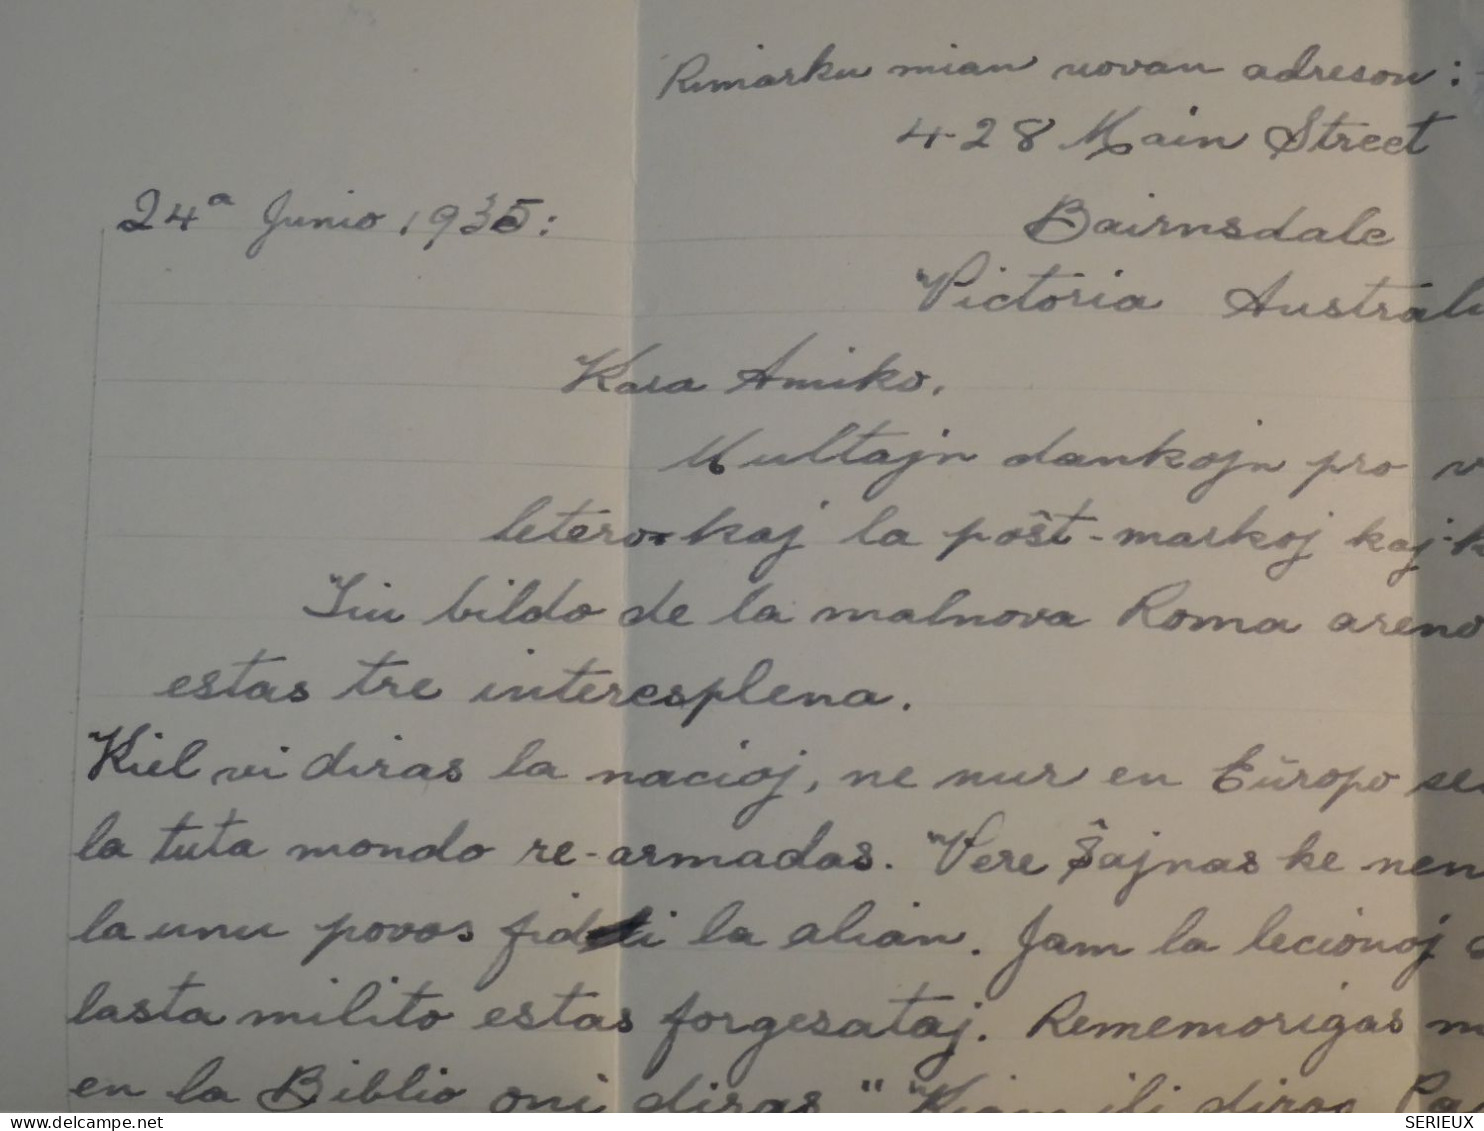 Rimarku mian novan adreson:
428 Main Street
24a Junio, 1935:
Bairnsdale
Victoria Australi
Kara Amiko,
Multajn dankojn pro v
letero kaj la poŝt-markoj kaj k
Tiu bildo de la malnova Roma areno
estas tre interesplena.
Kiel vi diras la nacioj, ne nur en Eŭropo sed
la tuta mondo re-armadas. Vere ŝajnas ke nen
la unu povas fidi la alian. Jam la lecionoj
lasta milito estas forgesataj. Rememorigas m
en la Biblio oni diras " "Kiam ili diros Pa
delcampe.net
SERIEUX